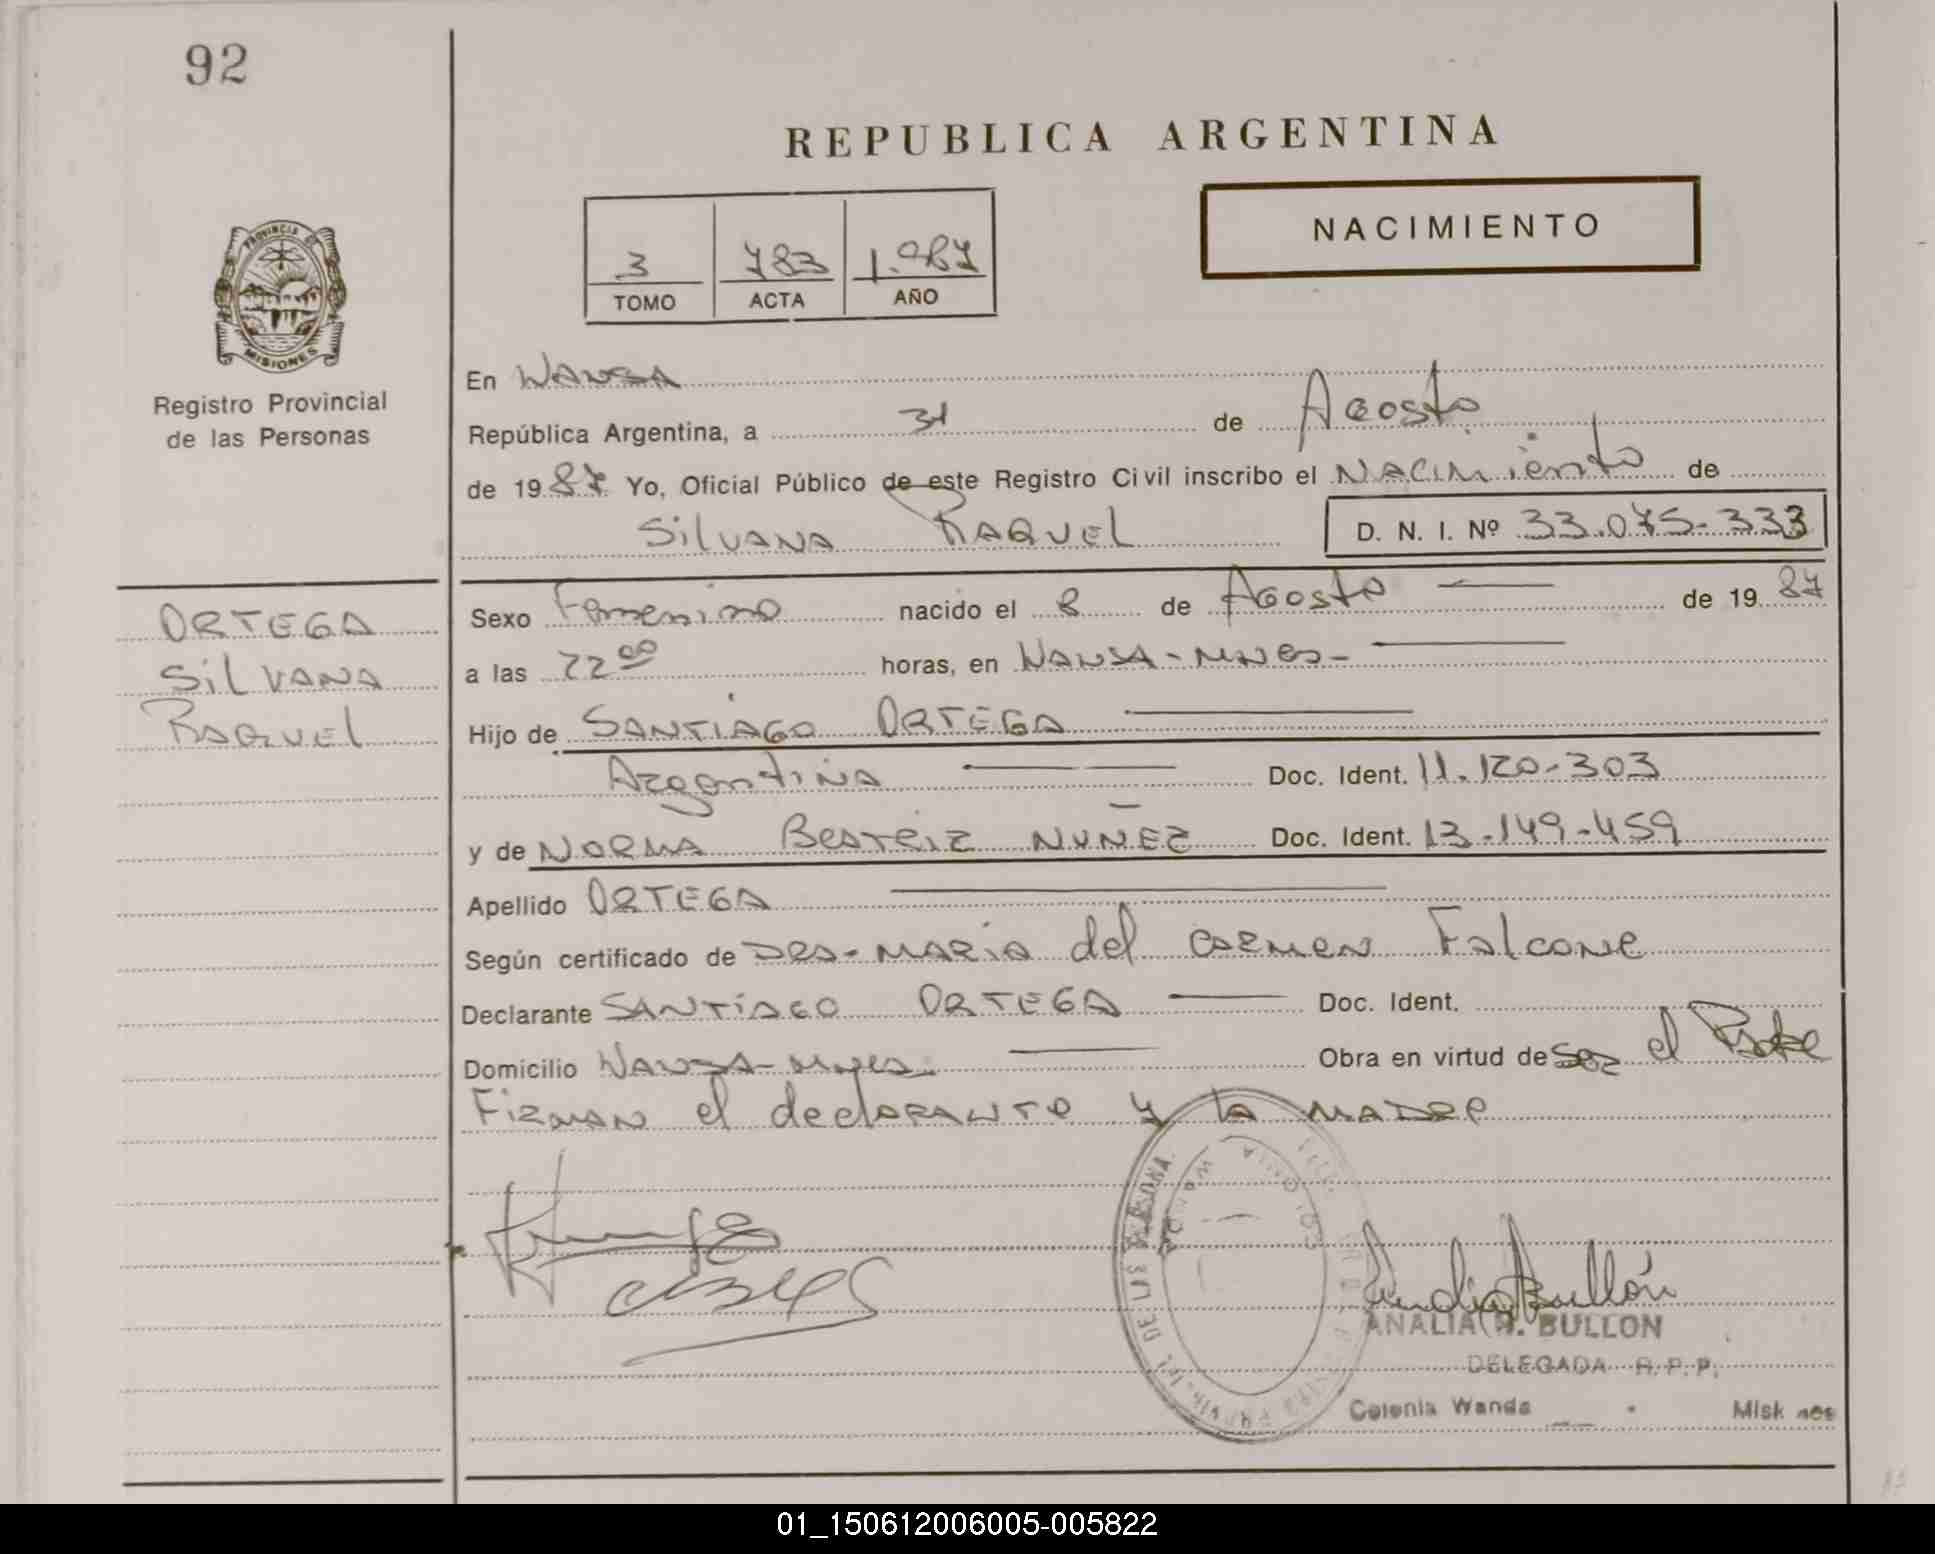 92
REPUBLICA ARGENTINA
NACIMIENTO
3 783 1.987
TOMO ACTA AÑO
PROVINCIA DE
MISIONES
Registro Provincial
de las Personas
En WANDA
República Argentina, a 31 de Agosto
de 1987 Yo, Oficial Público de este Registro Civil inscribo el NACIMiento de
SilVANA RAQUEL D. N. I. Nº 33.075-333
ORTEGA
SilVANA
RAQUEl
Sexo Femenino nacido el 8 de Agosto de 1987
a las 22 00 horas, en WANDA-MNES-
Hijo de SANTIAGO ORTEGA
Argentina Doc. Ident. 11.120-303
y de NORMA BEATRIZ NUÑEZ Doc. Ident. 13-149-459
Apellido ORTEGA
Según certificado de DRA-MARIA del CARMEN FAlCONE
Declarante SANTIAGO ORTEGA Doc. Ident.
Domicilio WANDA-MNES. Obra en virtud de SER el Padre
FIRMAN el declARANTE y la MADRE
ANALIA R. BULLON
DELEGADA R. P. P.
Colonia Wanda Misiones
01_150612006005-005822